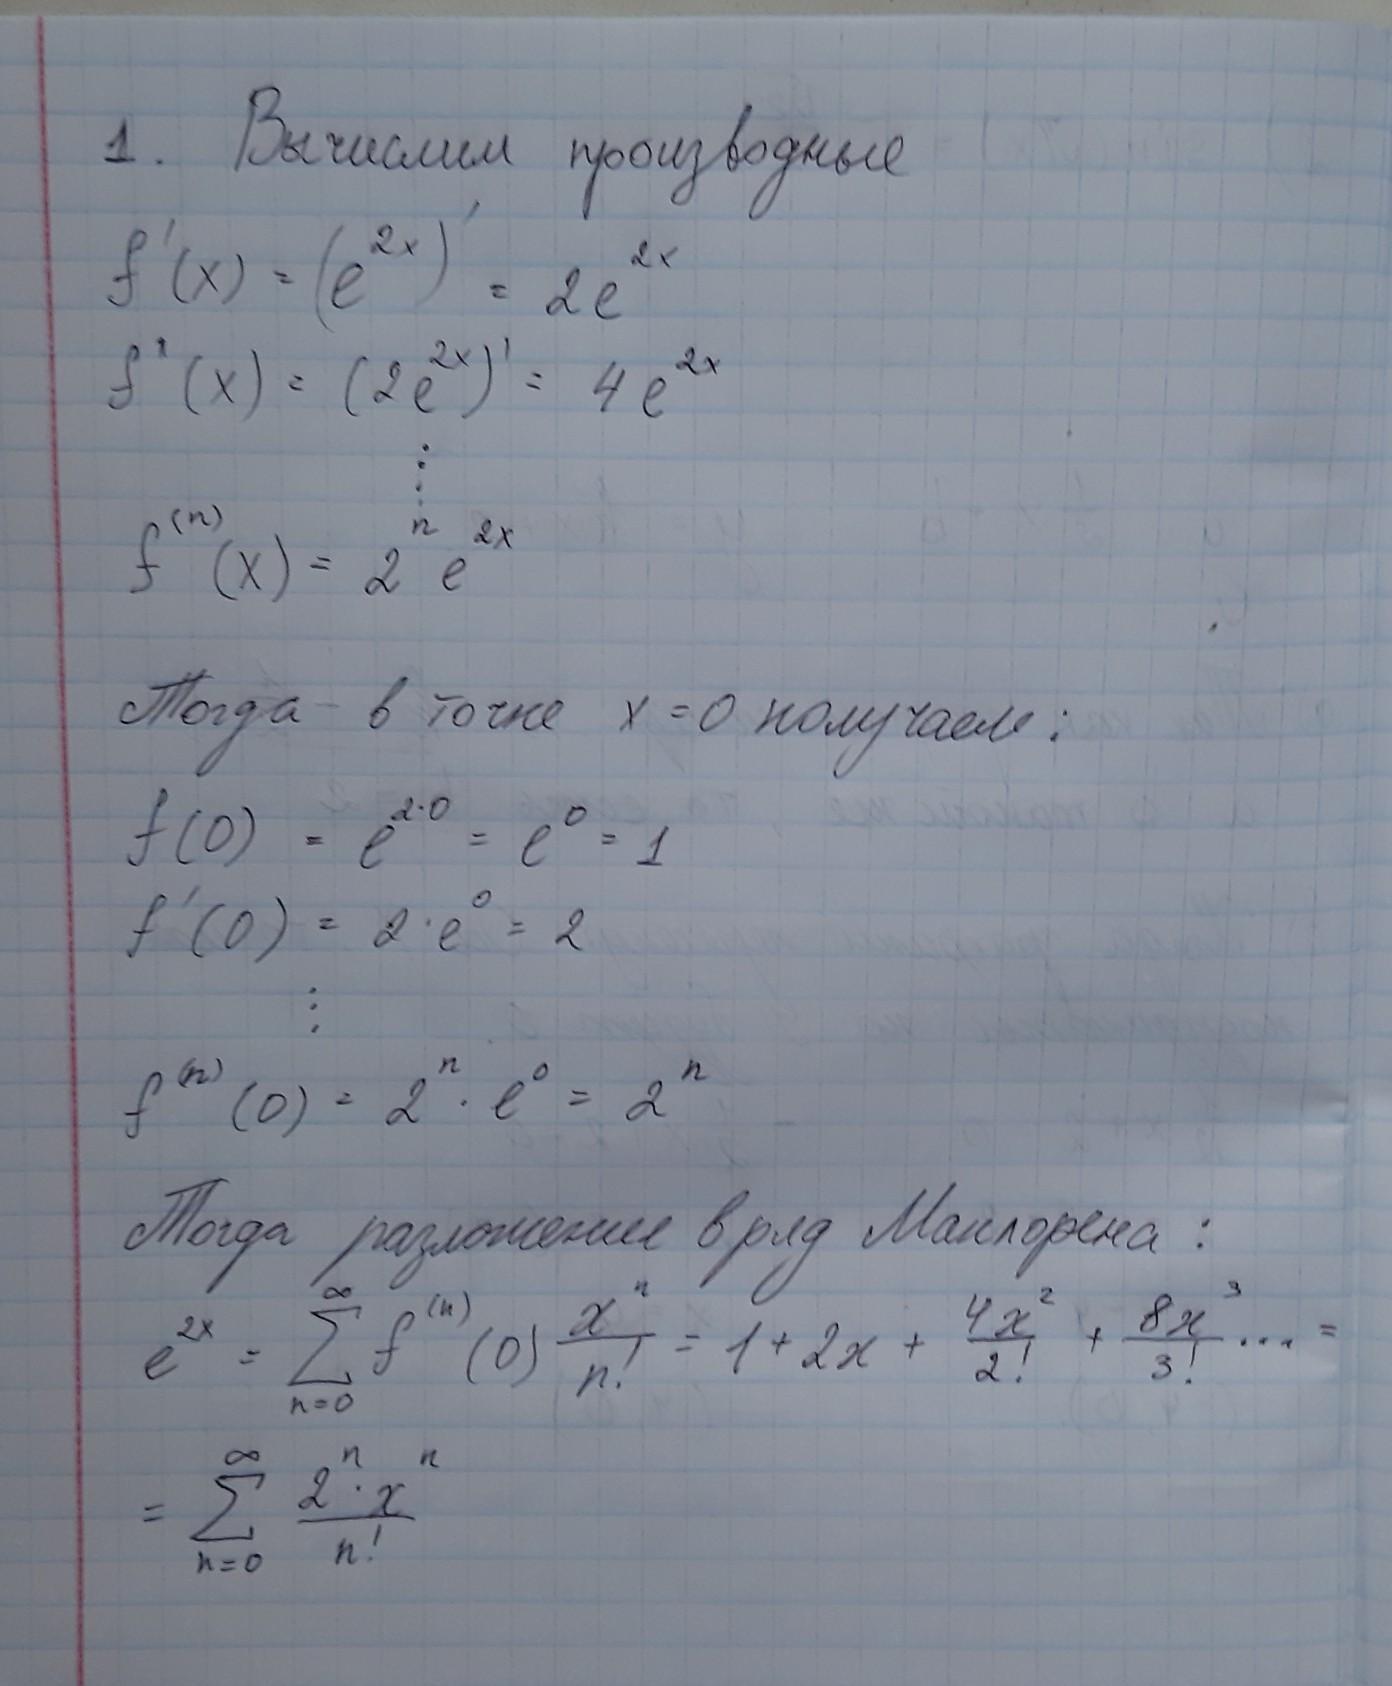 1. Вычислим производные
f'(x) = (e^{2x})' = 2e^{2x}
f''(x) = (2e^{2x})' = 4e^{2x}
⋮
f^{(n)}(x) = 2^n e^{2x}
Тогда в точке x = 0 получаем:
f(0) = e^{2·0} = e^0 = 1
f'(0) = 2·e^0 = 2
⋮
f^{(n)}(0) = 2^n · e^0 = 2^n
Тогда разложение в ряд Маклорена:
e^{2x} = \sum_{n=0}^{∞} f^{(n)}(0) \frac{x^n}{n!} = 1 + 2x + \frac{4x^2}{2!} + \frac{8x^3}{3!} ... =
= \sum_{n=0}^{∞} \frac{2^n · x^n}{n!}